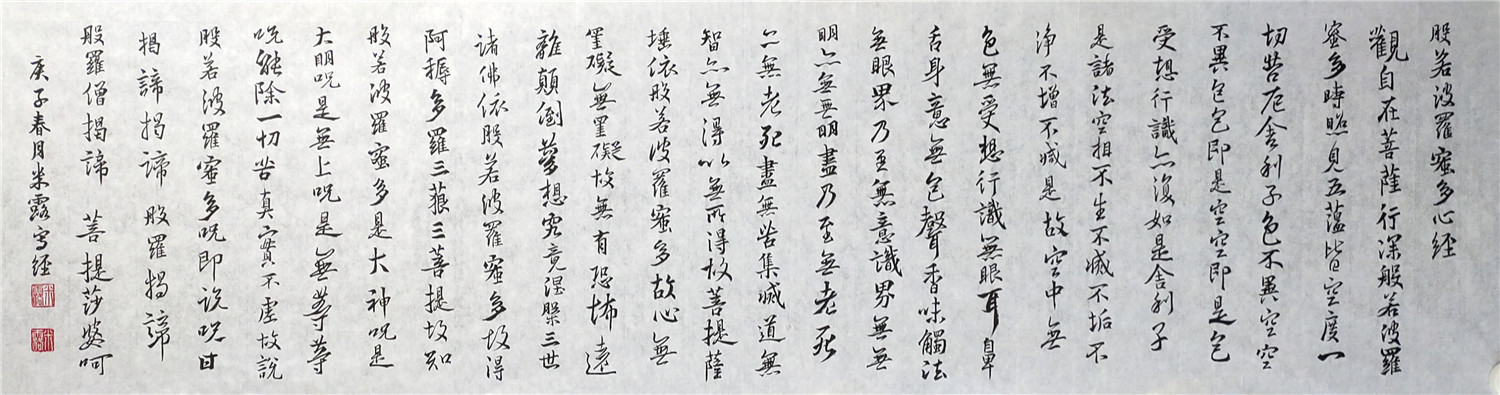 般若波羅蜜多心経
觀自在菩薩行深般若波羅
蜜多時照見五蘊皆空度一
切苦厄舍利子色不異空空
不異色色即是空空即是色
受想行識亦復如是舍利子
是諸法空相不生不滅不垢不
净不增不减是故空中無
色無受想行識無眼耳鼻
舌身意無色聲香味觸法
無眼界乃至無意識界無無
明亦無無明盡乃至無老死
亦無老死盡無苦集滅道無
智亦無得以無所得故菩提薩
埵依般若波羅蜜多故心無
罣礙無罣礙故無有恐怖遠
離顛倒夢想究竟涅槃三世
諸佛依般若波羅蜜多故得
阿耨多羅三藐三菩提故知
般若波羅蜜多是大神呪是
大明呪是無上呪是無等等
呪能除一切苦真實不虛故説
般若波羅蜜多呪即说呪曰
揭諦揭諦 般羅揭諦
般羅僧揭諦 菩提莎婆呵
庚子春月米露写経